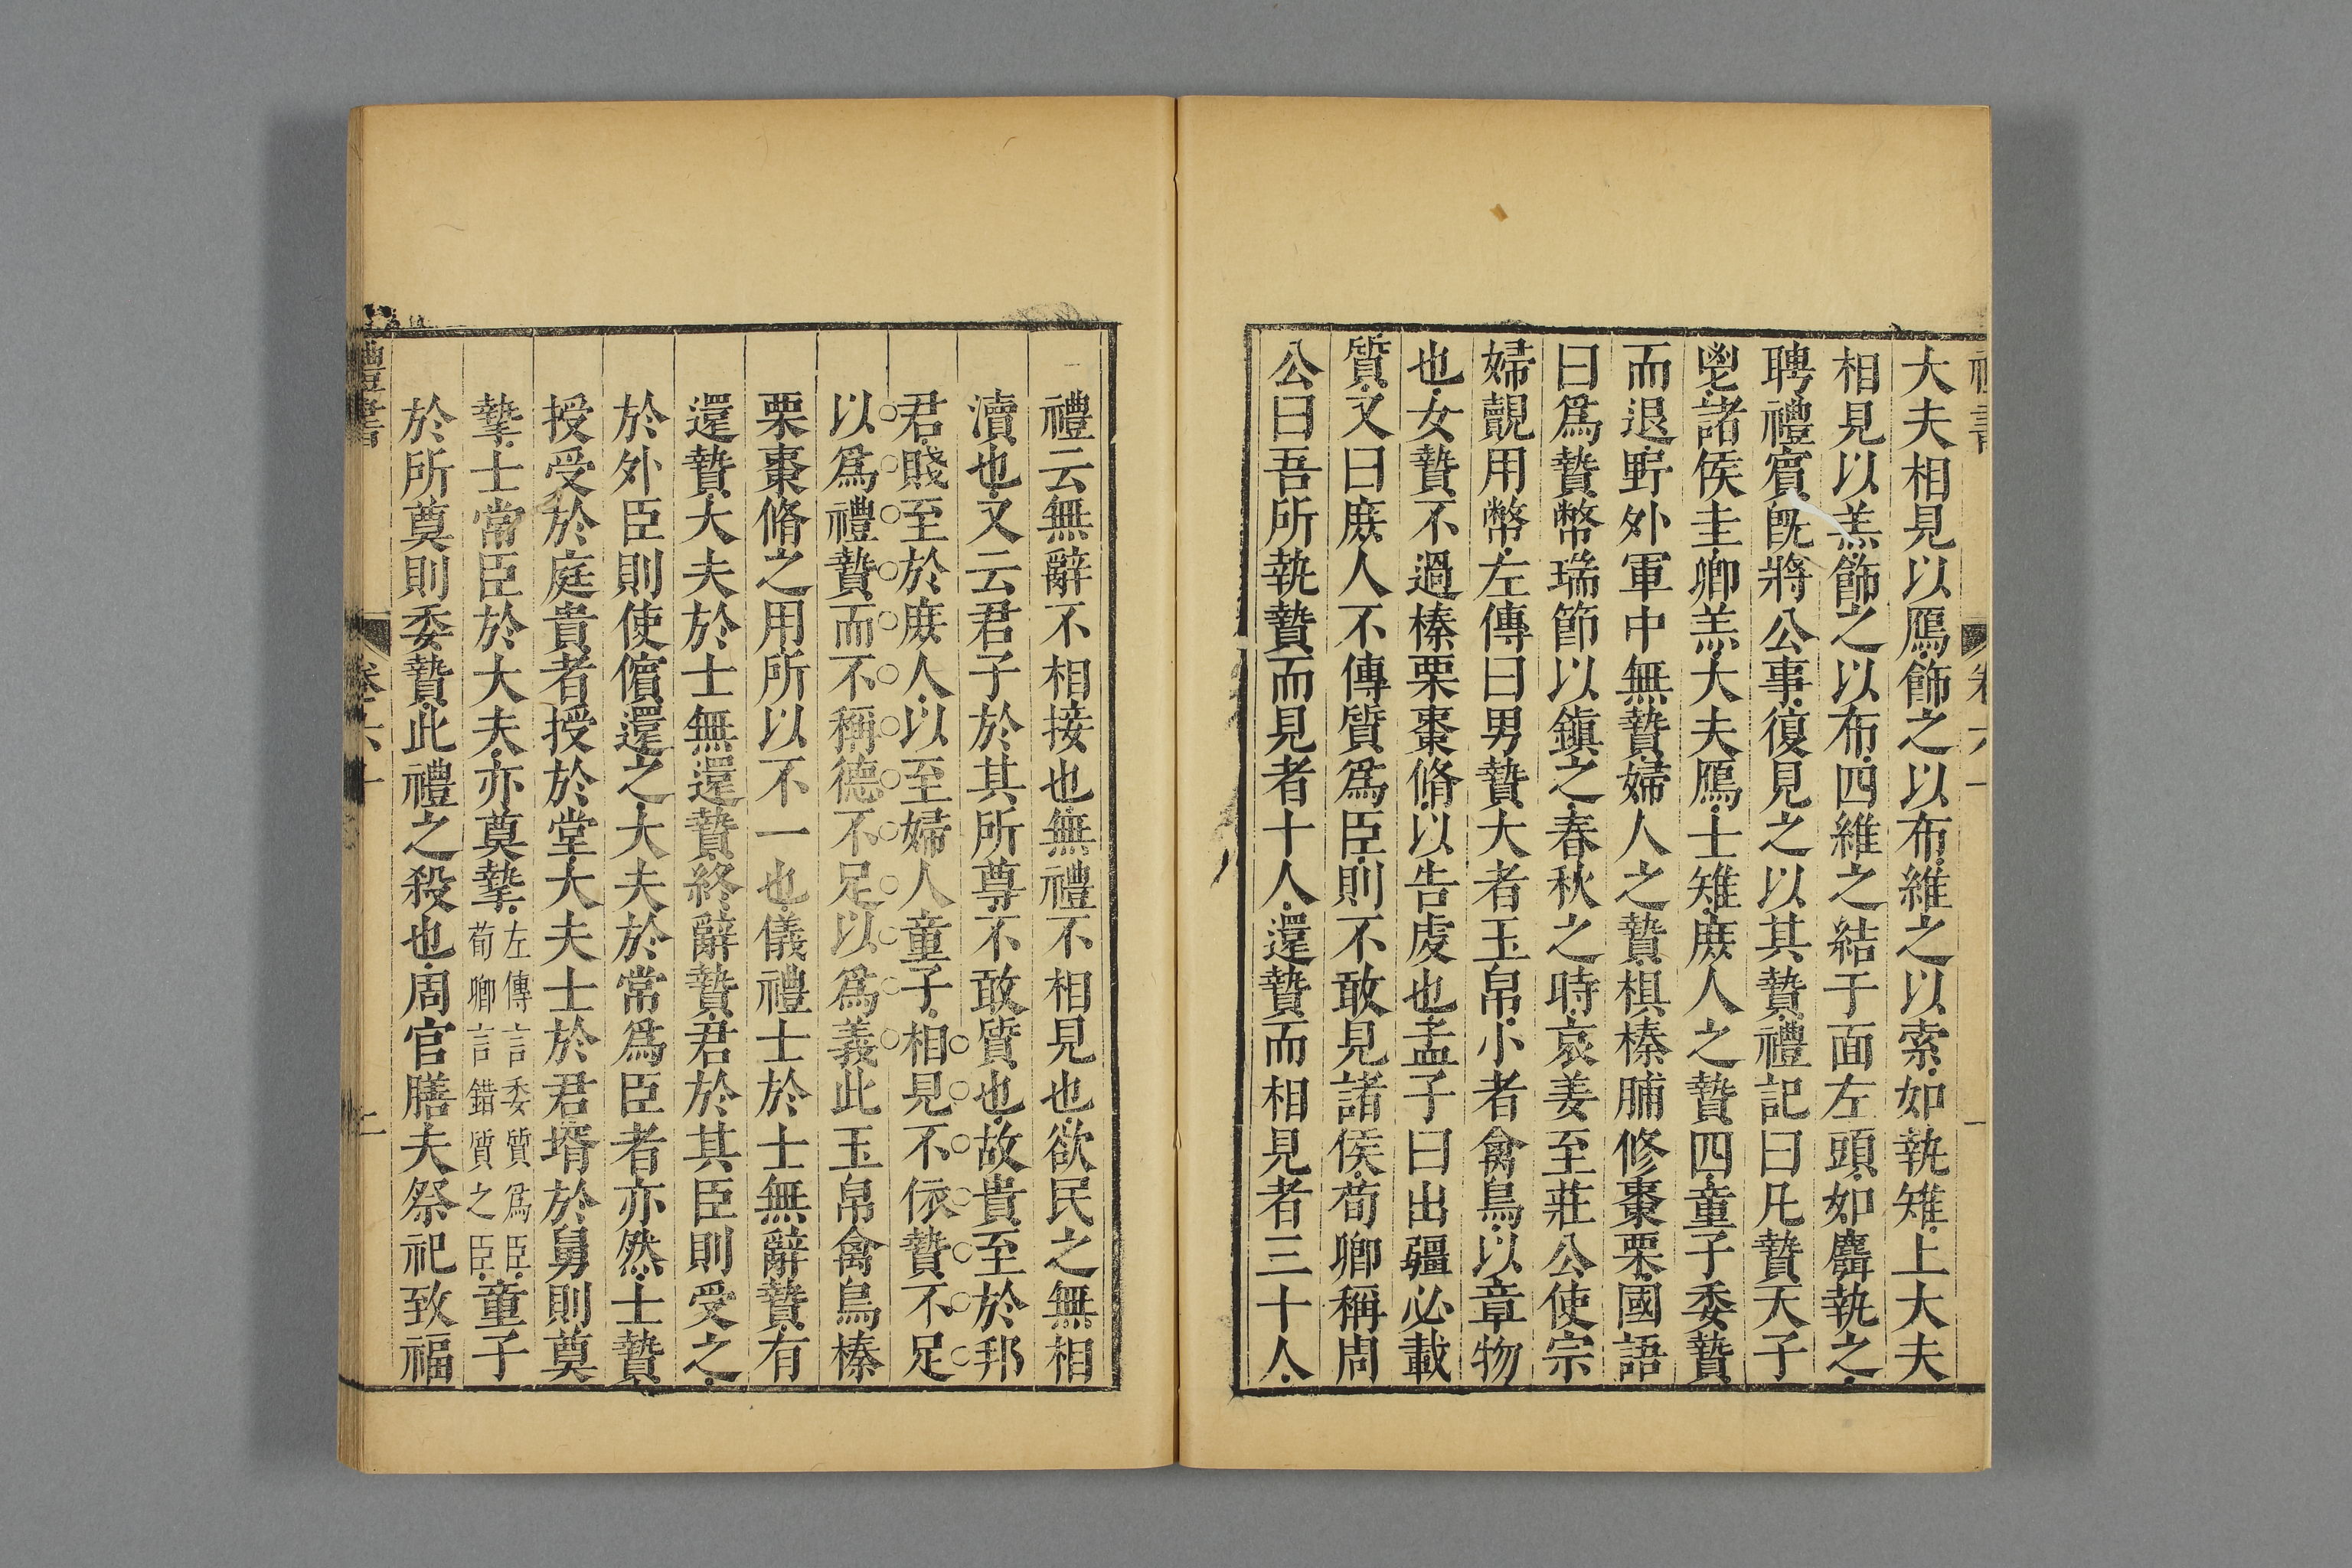 大夫相見以鴈飾之以布維之以索如執雉上大夫
相見以羔飾之以布四維之結于面左頭如麛執之
聘禮賓旣將公事復見之以其贄禮記曰凡贄天子
鬯諸侯圭卿羔大夫鴈士雉庶人之贄四童子委贄
而退野外軍中無贄婦人之贄椇榛脯修棗栗國語
曰爲贄幣瑞節以鎮之春秋之時哀姜至莊公使宗
婦覿用幣左傳曰男贄大者玉帛小者禽鳥以章物
也女贄不過榛栗棗脩以告虔也孟子曰出疆必載
質又曰庶人不傳質爲臣則不敢見諸侯荀卿稱周
公曰吾所執贄而見者十人還贄而相見者三十人
禮云無辭不相接也無禮不相見也欲民之無相
瀆也又云君子於其所尊不敢質也故貴至於邦
君賤至於庶人以至婦人童子相見不依贄不足
以爲禮贄而不稱德不足以爲義此玉帛禽鳥榛
栗棗脩之用所以不一也儀禮士於士無辭贄有
還贄大夫於士無還贄終辭贄君於其臣則受之
於外臣則使儐還之大夫於常爲臣者亦然士贄
授受於庭貴者授於堂大夫士於君壻於舅則奠
摯士常臣於大夫亦奠摯左傳言委質爲臣荀卿言錯質之臣童子
於所奠則委贄此禮之殺也周官膳夫祭祀致福
禮書 卷六十